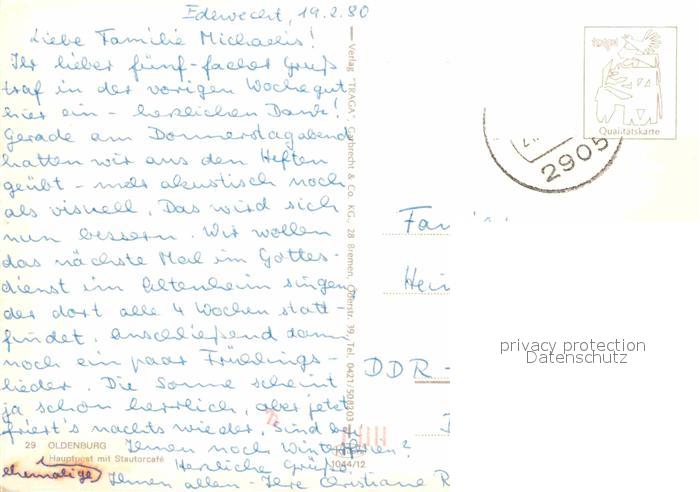 Edewecht, 19.2.80
Liebe Familie Michaelis!
Ihr lieber fünf-facher Gruß
traf in der vorigen Woche gut
hier ein - herzlichen Dank!
Gerade am Donnerstagabend
hatten wir aus den Heften
geübt - mehr akustisch noch
als visuell. Das wird sich
nun bessern. Wir wollen
das nächste Mal im Gottes-
dienst im Altenheim singen,
der dort alle 4 Wochen statt-
findet, anschließend dann
noch ein paar Frühlings-
lieder. Die Sonne scheint
ja schon herrlich, aber jetzt
friert's nachts wieder. Sind bei
Ihnen noch Winterferien?
Herzliche Grüße
Ihnen allen - Ihre Christiane R
29 OLDENBURG
Hauptpost mit Stautorcafé
ehemalige
Verlag "TRAGA", Galbrecht & Co. KG., 28 Bremen, Oderstr. 39, Tel. 0421/
1044/12
Fam
Hein
DDR -
traga
Qualitätskarte
2905
privacy protection
Datenschutz